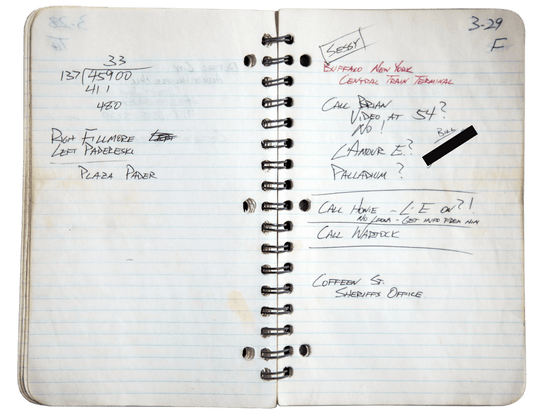 33
137 45900
411
480
RIGH FILLMORE LEFT
LEFT PADERESKI
PLAZA PADER
3-29
F
SESSY
BUFFALO NEW YORK
CENTRAL TRAIN TERMINAL
CALL BRIAN
VIDEO, AT 54?
NO!
BILL
L'AMOUR E?
PALLADIUM?
CALL HOWIE - L-E ON?!
NO LOON - GET INFO FROM HIM
CALL
COFFEEN ST.
SHERIFFS OFFICE